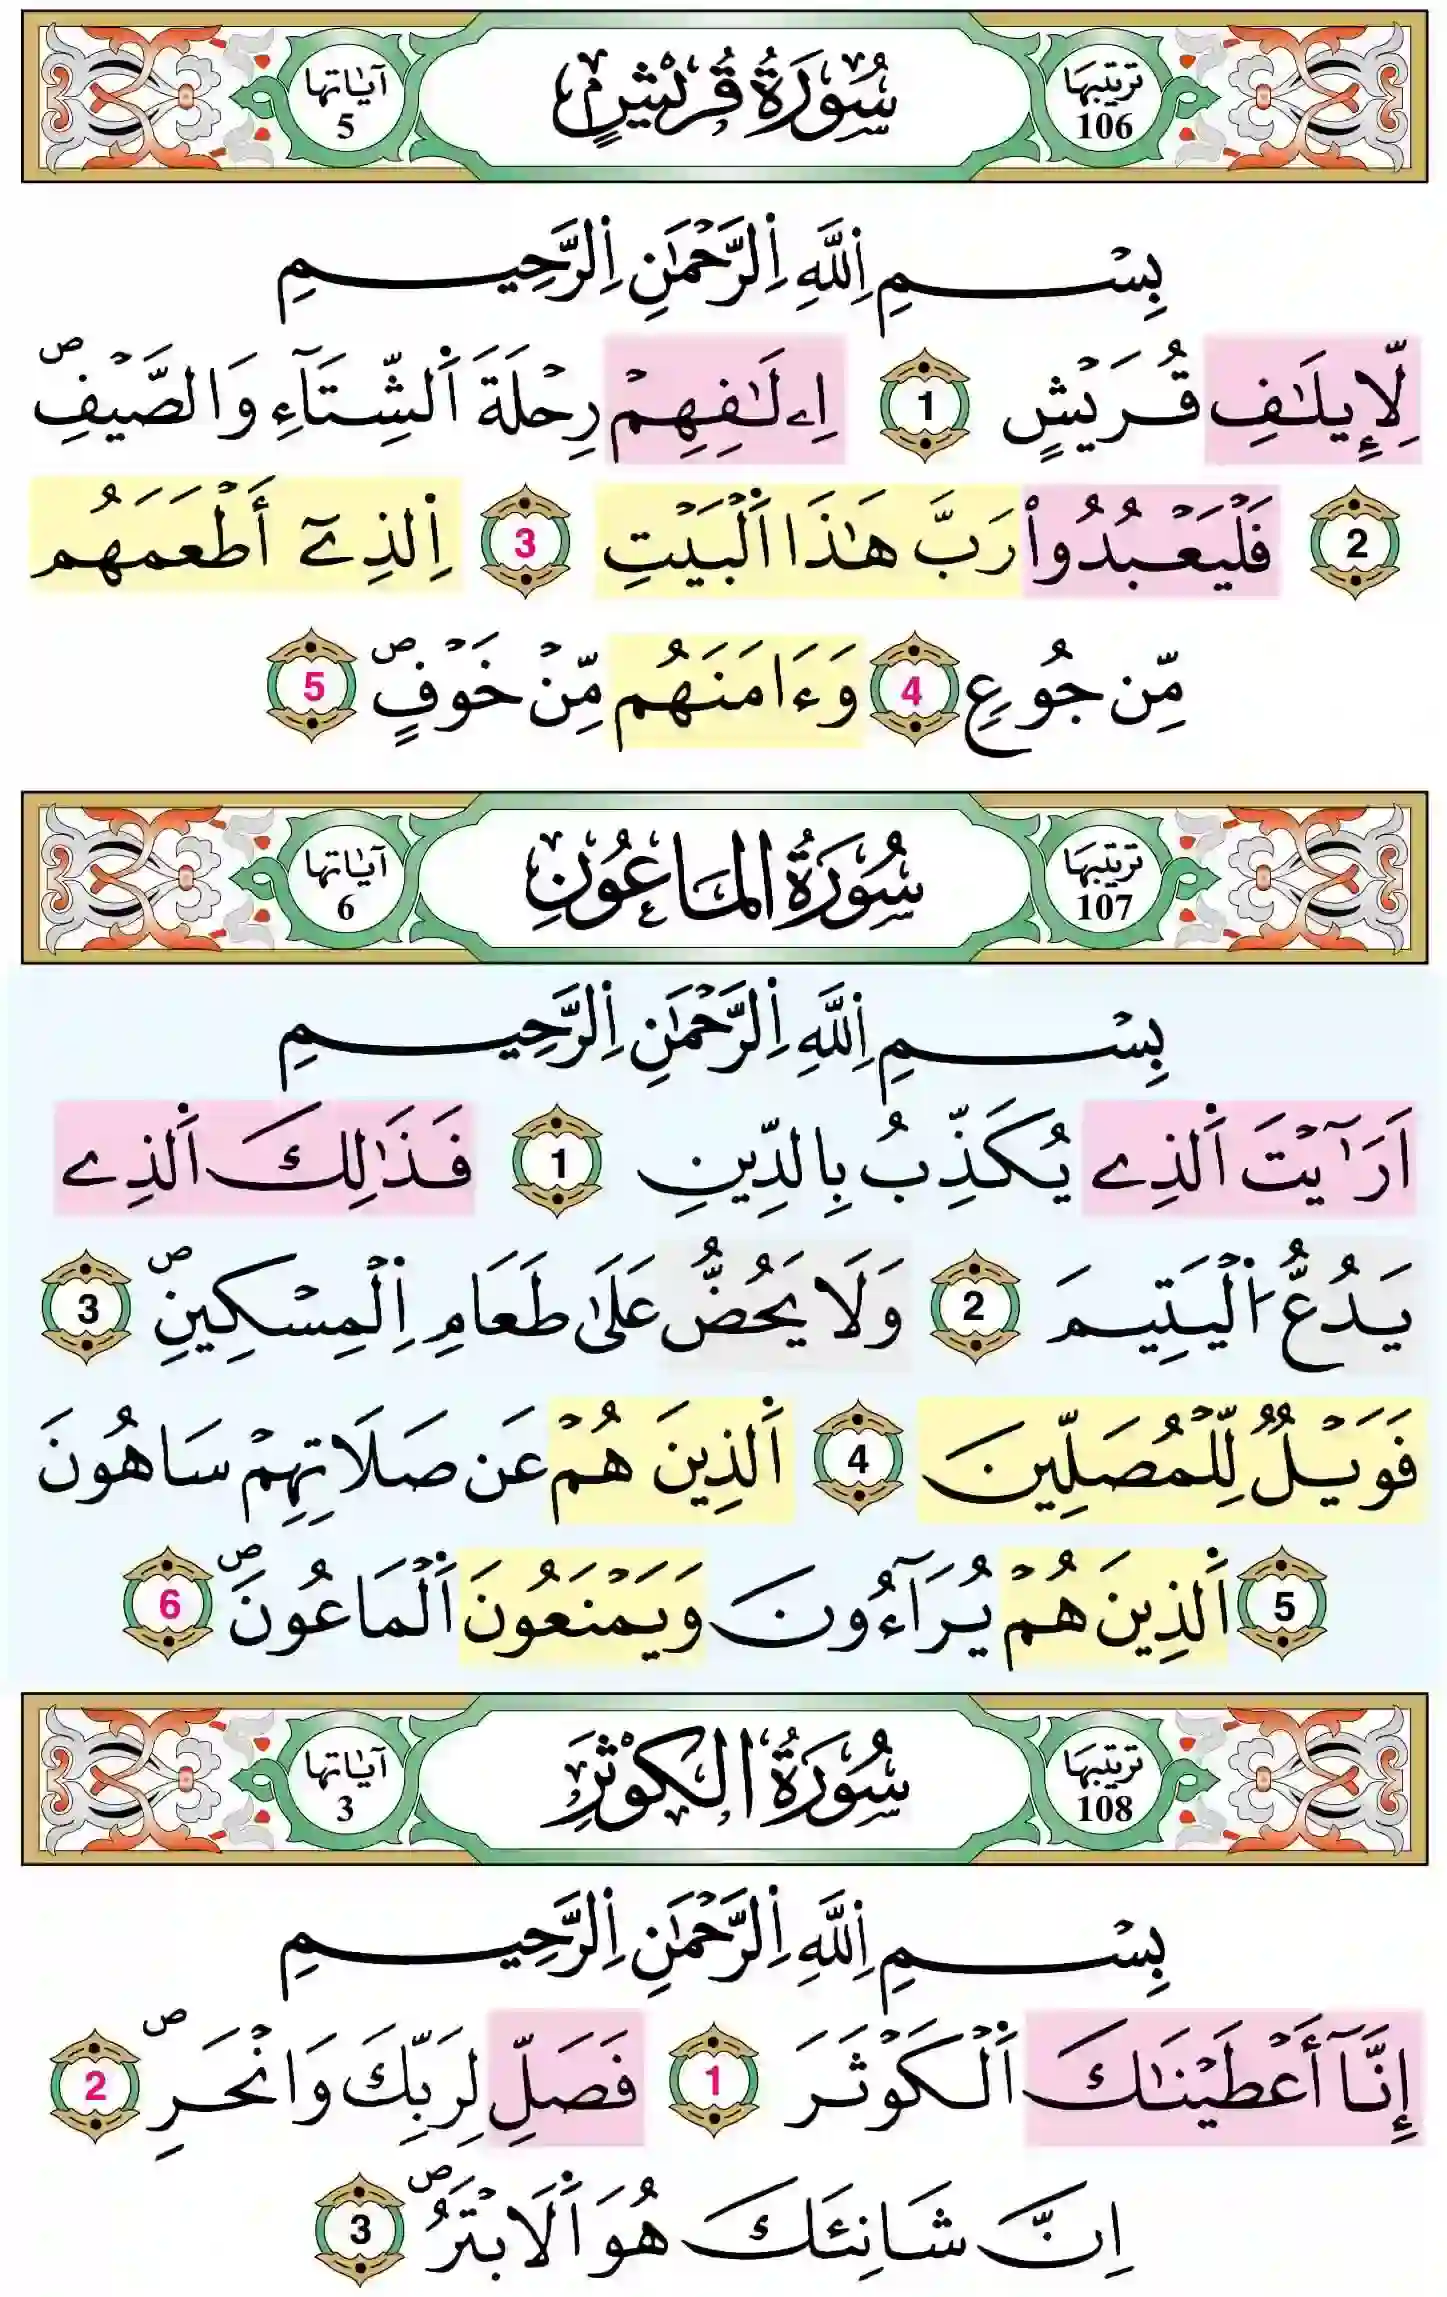 ترتيبها 106 سُورَةُ قُرَيْشٍ آياتها 5
بِسْمِ اِ۬للَّهِ اِ۬لرَّحْمَٰنِ اِ۬لرَّحِيمِ
لِّإِيلَٰفِ قُرَيْشٍ 1 اِۦلَٰفِهِمْ رِحْلَةَ اَ۬لشِّتَآءِ وَالصَّيْفِۖ
2 فَلْيَعْبُدُواْ رَبَّ هَٰذَا اَ۬لْبَيْتِ 3 اِ۬لذِےٓ أَطْعَمَهُم
مِّن جُوعٍ 4 وَءَامَنَهُم مِّنْ خَوْفٍۖ 5
ترتيبها 107 سُورَةُ المَاعُونِ آياتها 6
بِسْمِ اِ۬للَّهِ اِ۬لرَّحْمَٰنِ اِ۬لرَّحِيمِ
اَرَٰٓيْتَ اَ۬لذِے يُكَذِّبُ بِالدِّينِ 1 فَذَٰلِكَ اَ۬لذِے
يَدُعُّ اُ۬لْيَتِيمَ 2 وَلَا يَحُضُّ عَلَىٰ طَعَامِ اِ۬لْمِسْكِينِۖ 3
فَوَيْلٌ لِّلْمُصَلِّينَ 4 اَ۬لذِينَ هُمْ عَن صَلَاتِهِمْ سَاهُونَ
5 اَ۬لذِينَ هُمْ يُرَآءُونَ وَيَمْنَعُونَ اَ۬لْمَاعُونَۖ 6
ترتيبها 108 سُورَةُ الكَوْثَرِ آياتها 3
بِسْمِ اِ۬للَّهِ اِ۬لرَّحْمَٰنِ اِ۬لرَّحِيمِ
إِنَّآ أَعْطَيْنَٰكَ اَ۬لْكَوْثَرَ 1 فَصَلِّ لِرَبِّكَ وَانْحَرِۖ 2
اِنَّ شَانِئَكَ هُوَ اَ۬لَابْتَرُۖ 3